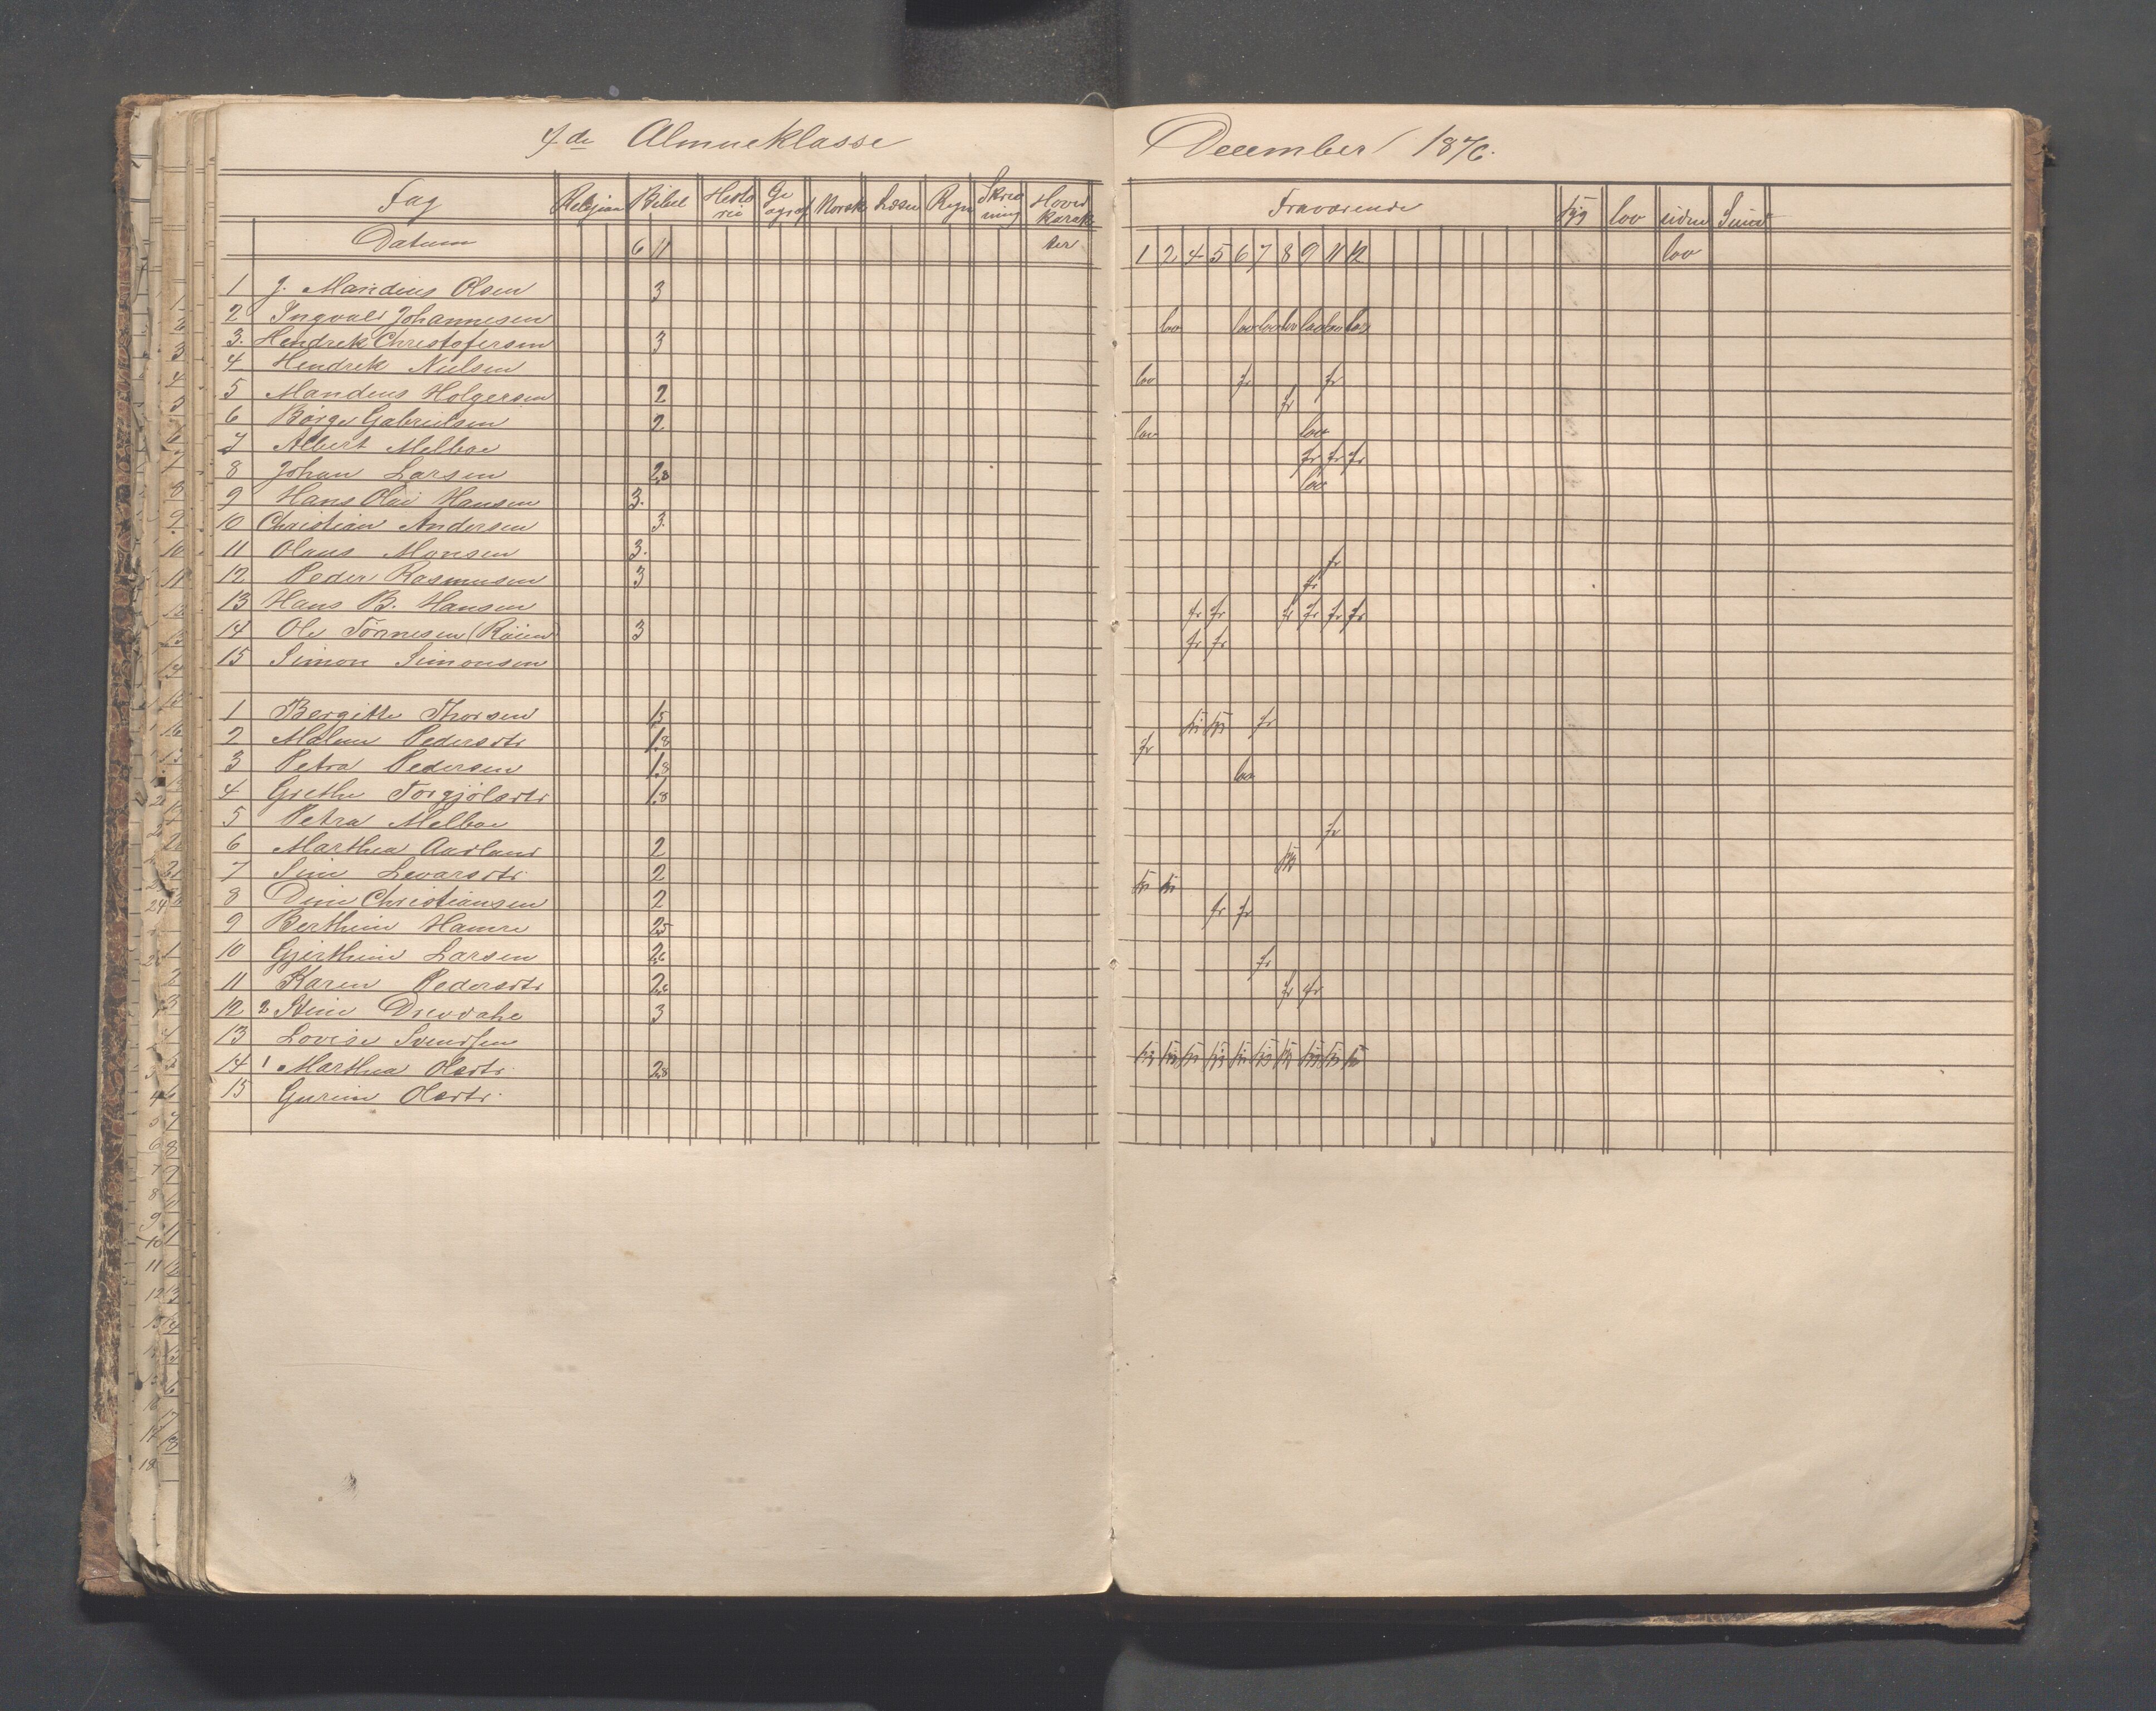 4de Almueklasse
Fag Religion Bibel Histo rie Ge ograf Norsk Læsn Regn Skriv ning Hoved karak ter
Datum 6 11
1 J. Mandius Olsen 3
2 Ingvald Johannesen
3. Hendrek Christofersen 3
4 Hendrek Nielsen
5 Mandius Holgersen 2
6 Børge Gabrielsen 2
7 Albert Melboe
8 Johan Larsen 2,8
9 Hans Olai Hansen 3.
10 Christian Andersen 3.
11 Olaus Monsen 3.
12 Peder Rasmusen 3
13 Hans B. Hansen
14 Ole Tönnesen (Röien) 3
15 Simon Simonsen
1 Bergitte Thorsen 1,5
2 Malene Pedersdtr 1,8
3 Petra Pedersen 1,8
4 Grethe Torgjölsdtr 1,8
5 Petra Melboe
6 Marthea Aarland 2
7 Sine Levarsdtr 2
8 Dine Christiansen 2
9 Berthine Hamre 2,5
10 Gjerthine Larsen 2,6
11 Karen Pedersdtr 2,6
12 2 Stine Drevdahl 3
13 Lovise Svendsen
14 1 Marthea Olsdtr 2,8
15 Gurine Olsdtr.
December 1876.
Fraværende syg lov uden lov Sum
1 2 4 5 6 7 8 9 11 12
lov lov lov lov lov lov lov
lov fr fr
fr
lov lov
fr fr fr
lov
fr
fr
fr fr fr fr fr fr
fr fr
syg syg fr
fr
lov
fr
syg
syg syg
fr fr
fr
fr fr
syg syg syg syg syg syg syg syg syg syg